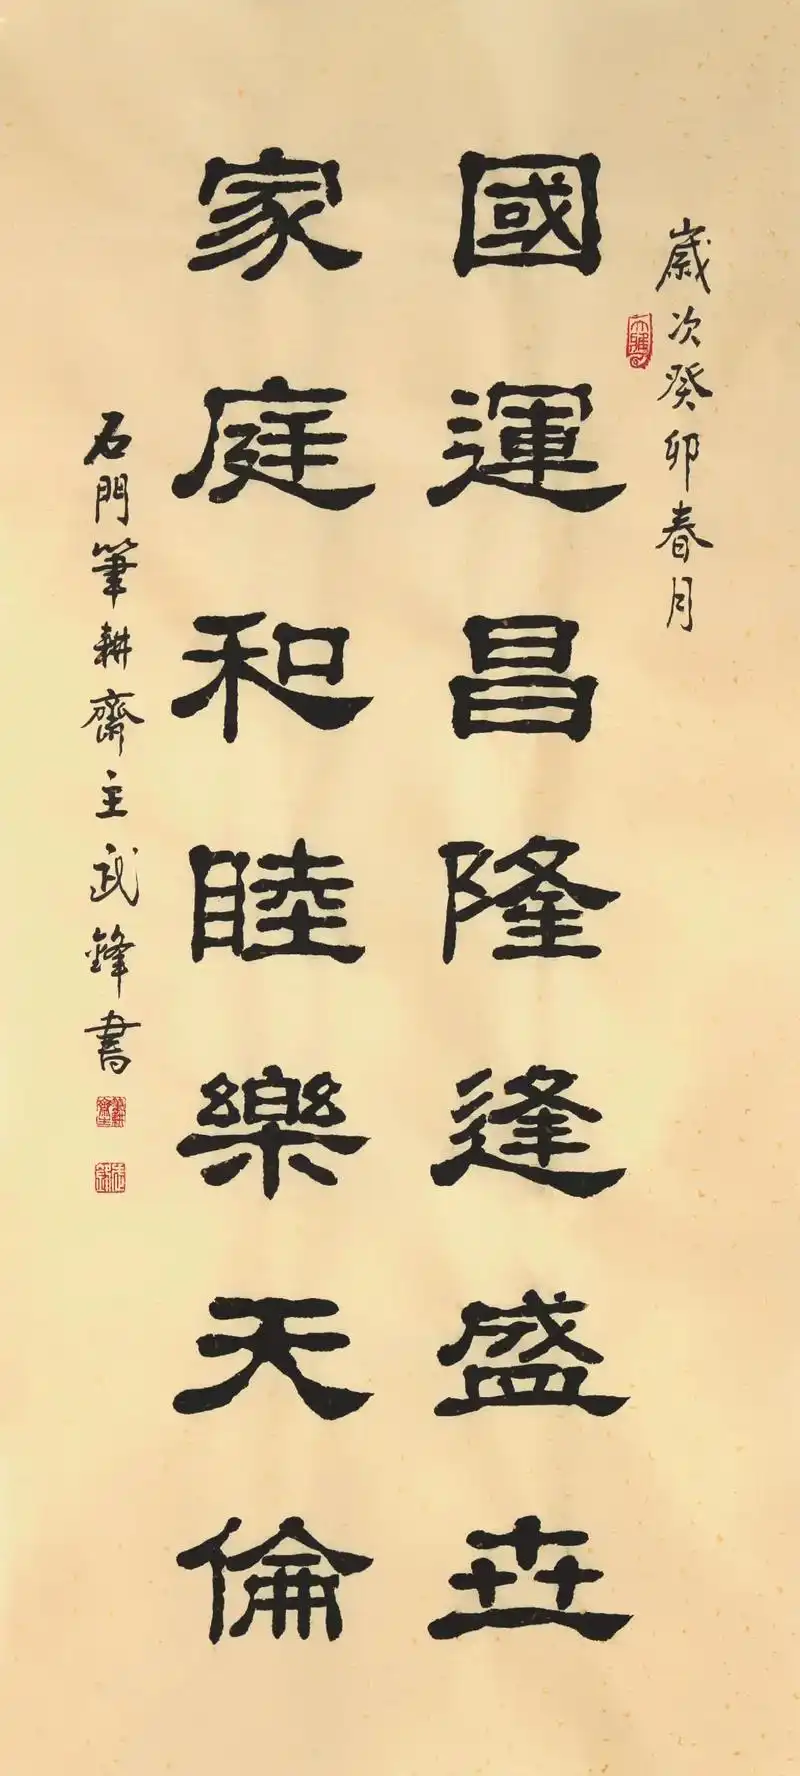 歲次癸卯春月
國運昌隆逢盛卋
家庭和睦樂天倫
石門筆耕齋主武鋒書